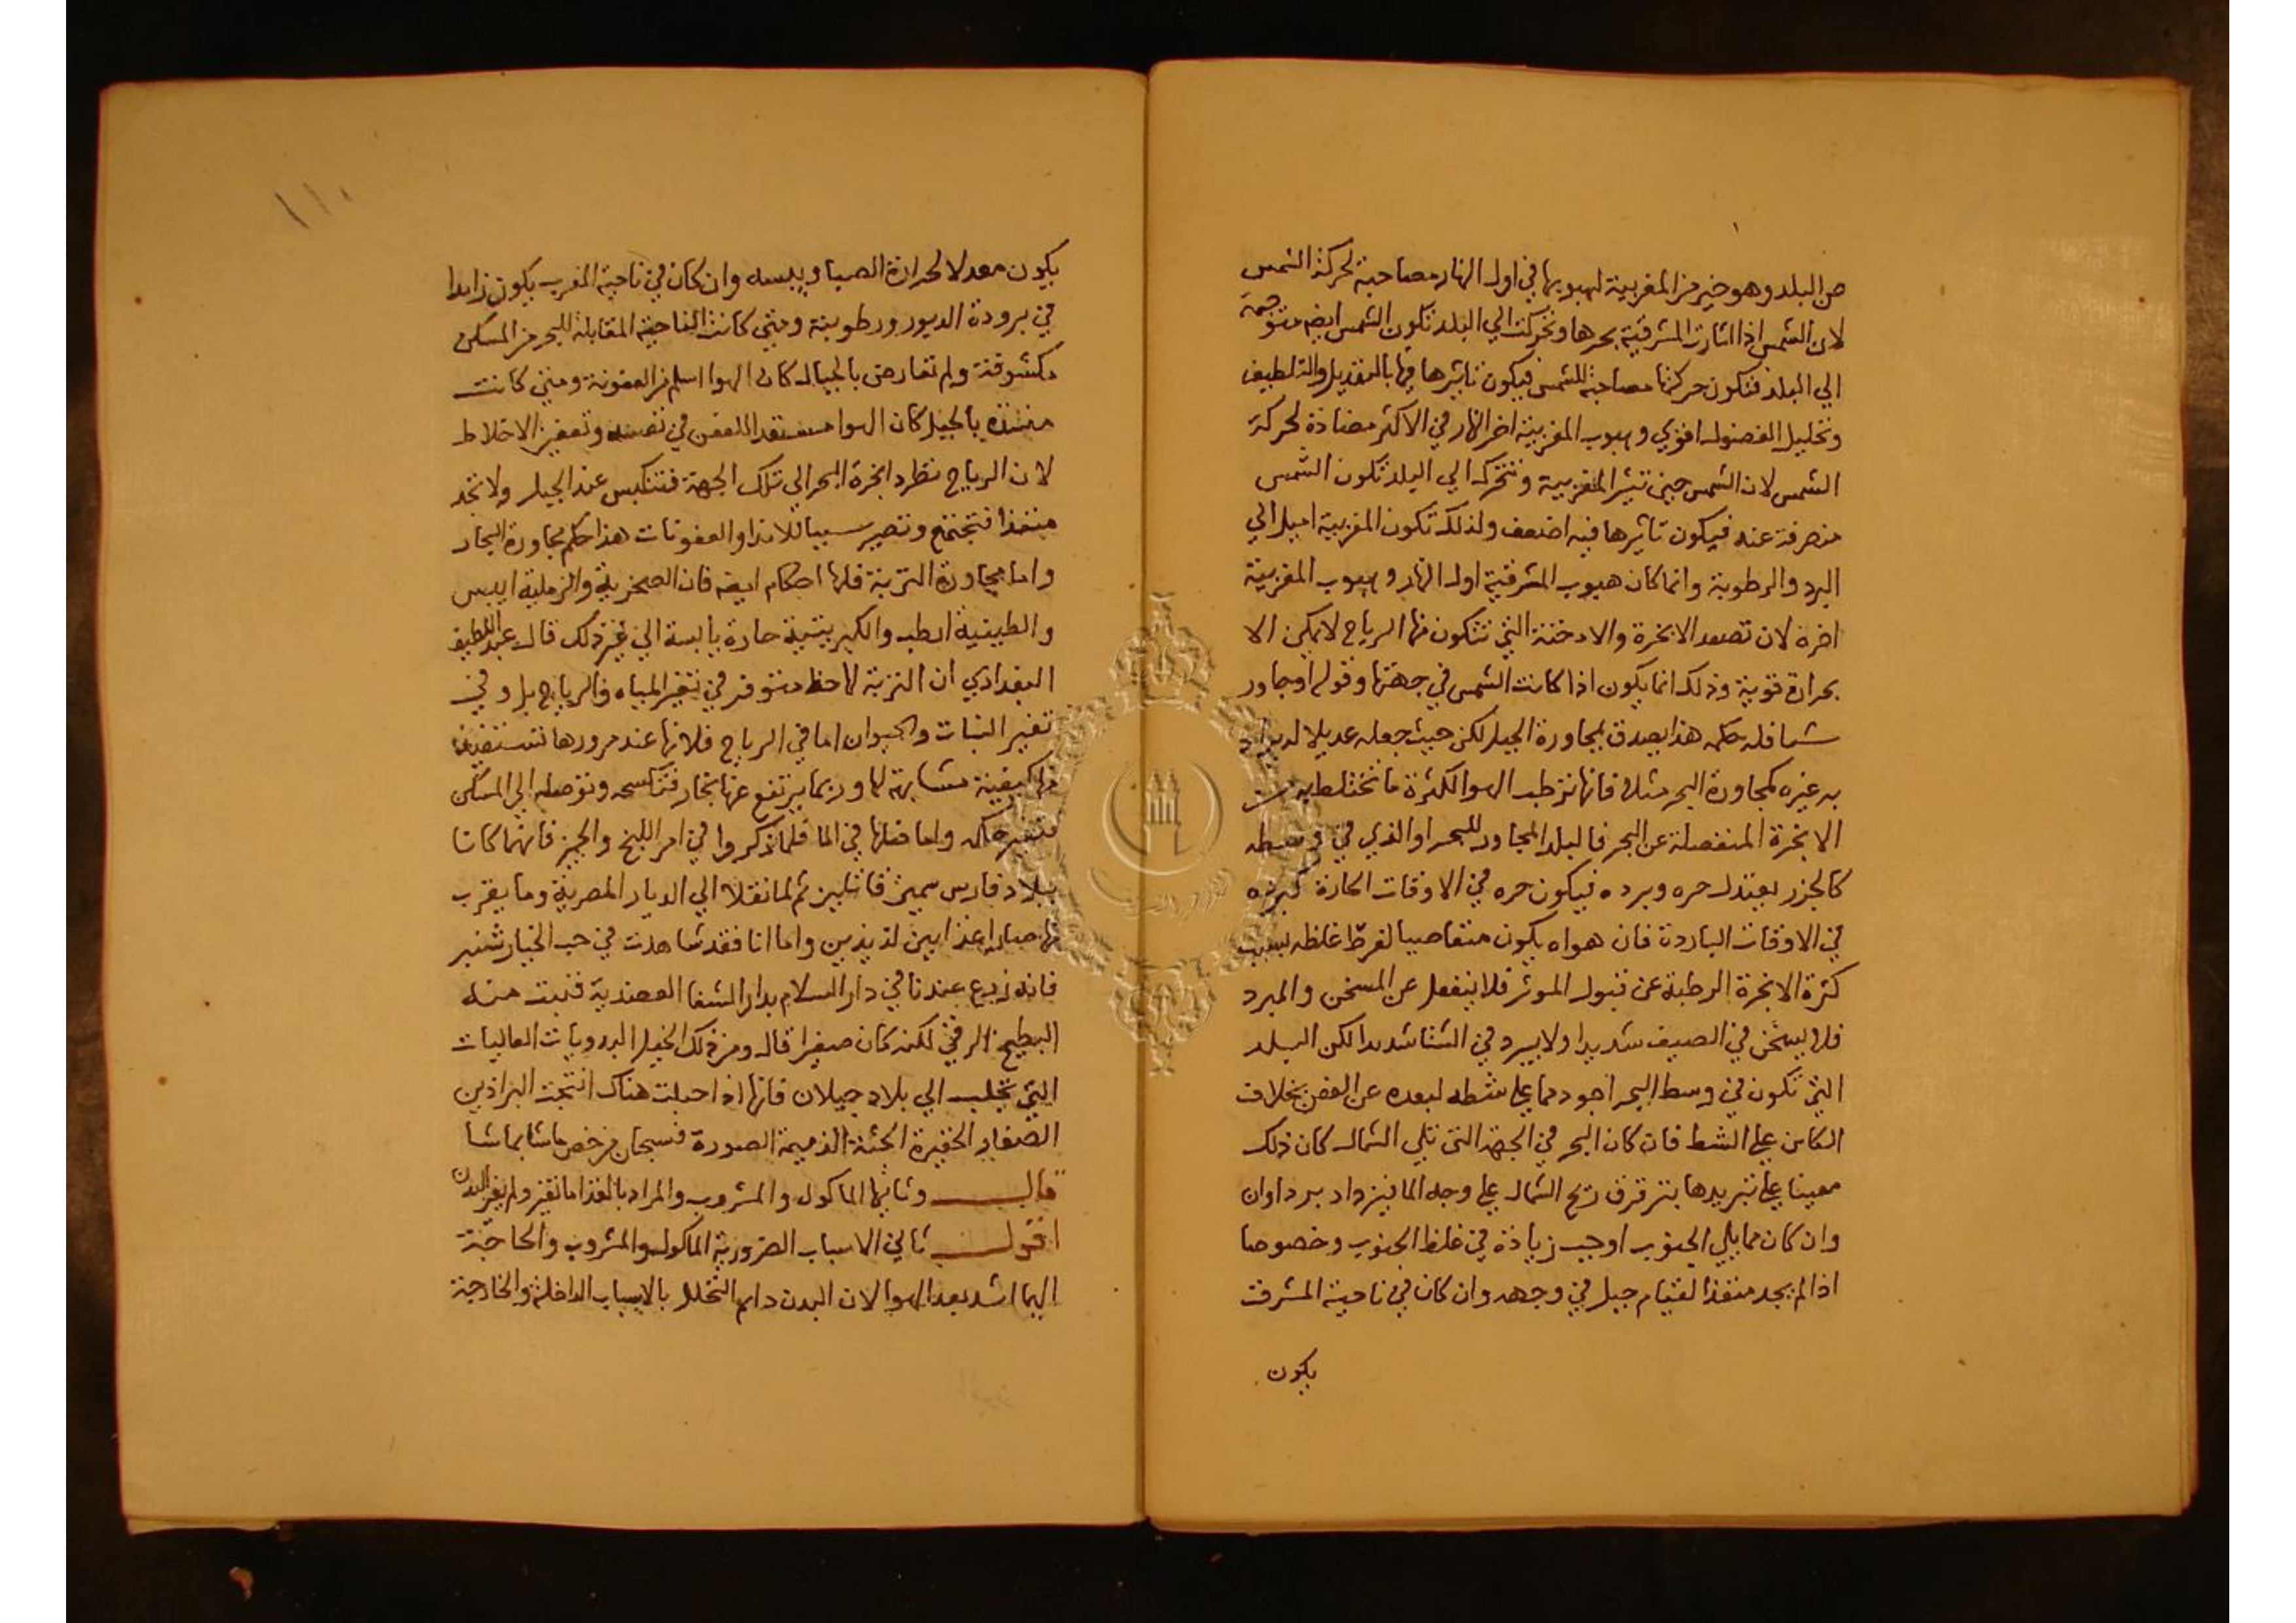 من البلد وهو خير من المغربية لهبوبها في اول النهار مصاحبة لحركة الشمس
لان الشمس اذا اثارت المشرقية بحرها وتحركت الي البلد تكون الشمس ايضم متوجهة
الي البلد فتكون حركتها مصاحبة للشمس فيكون تاثيرها فيها بالتعديل والتلطيف
وتحليل الفضول اقوي وهبوب المغربية اخر النهار في الاكثر مضادة لحركة
الشمس لان الشمس حين تثير المغربية وتتحرك الي البلد تكون الشمس
منصرفة عنه فيكون تاثيرها فيه اضعف ولذلك تكون المغربية اميل الي
البرد والرطوبة وانما كان هبوب المشرقية اول النهار وهبوب المغربية
اخره لان تصعد الابخرة والادخنة التي تتكون منها الرياح لا يمكن الا
بحرارة قوية وذلك انما يكون اذا كانت الشمس في جهتها وقوله او مجاور
شيا فله حكمه هذا يصدق بمجاورة الجبل لكن حيث جعله عديلا له يراد
به غيره كمجاورة البحر مثلا فانها ترطب الهوا لكثرة ما تختلط به من
الابخرة المنفصلة عن البحر فالبلد المجاور للبحر او الذي في وسطه
كالجزر يعتدل حره وبرده فيكون حره في الاوقات الحارة كبرده
في الاوقات الباردة فان هواه يكون متعاصيا لفرط غلظه بسبب
كثرة الابخرة الرطبة عن قبول الموثر فلا ينفعل عن المسخن والمبرد
فلا يسخن في الصيف شديدا ولا يبرد في الشتا شديدا لكن البلد
التي تكون في وسط البحر اجود مما علي شطه لبعده عن العفن بخلاف
الكاين علي الشط فان كان البحر في الجهة التي تلي الشمال كان ذلك
معينا علي تبريدها بترقرق ريح الشمال علي وجه الما فيزداد بردا وان
وان كان مما يلي الجنوب اوجب زيادة في غلظ الجنوب وخصوصا
اذا لم يجد منفذا لقيام جبل في وجهه وان كان في ناحية المشرق
يكون
١١٠
يكون معدلا لحرارة الصبا ويبسه وان كان في ناحية المغرب يكون زايدا
في برودة الدبور ورطوبته ومتي كانت الناحية المقابلة للبحر من المسكن
مكشوفة ولم تعارض بالجبال كان الهوا اسلم من العفونة ومتي كانت
منسده بالجبل كان الهوا مستعد اللتعفن في نفسه وتعفين الاخلاط
لان الرياح تطرد ابخرة البحر الي تلك الجهة فتنكبس عند الجبل ولا تجد
منفذا فتجتمع وتصير سببا للاندا والعفونات هذا حكم مجاورة البحار
واما مجاورة التربة فلها احكام ايضه فان الصخرية والرملية ايبس
والطينية ارطب والكبريتية حارة يابسة الي غير ذلك قال عبد اللطيف
البغدادي ان التربة لها حظ متوفر في تغير المياه والرياح بل وفي
تغير النبات والحيوان اما في الرياح فلانها عند مرورها تستفيد
كيفية مشابهة لها وربما يرتفع عنها بخار فتكسحه وتوصله الي المساكن
فتغير حكمه واما فعلها في الما فلما ذكروا في امر اللبخ والجيز فانهما كانا
ببلاد فارس سمين قاتلين ثم لما نقلا الي الديار المصرية وما يقرب
منها صارا غذايين لذيذين واما انا فقد شاهدت في حب الخيار شنبر
فانه زرع عندنا في دار السلام بدار الشفا العضدية فنبت منه
البطيخ الرقي لكنه كان صغيرا قال ومن ذلك الخيل البدويات العاليات
التي تجلب الي بلاد جيلان فانها اذا حبلت هناك انتجت البراذين
الصغار الحقيرة الجثة الذميمة الصورة فسبحان من خص ما شا بما شا
قال وثانيها الماكول والمشروب والمراد بالغذا ما تغير ولم يغير البدن
اقول ثاني الاسباب الضرورية الماكول والمشروب والحاجة
اليها اشد بعد الهوا لان البدن دايم التحلل بالاسباب الداخلة والخارجة